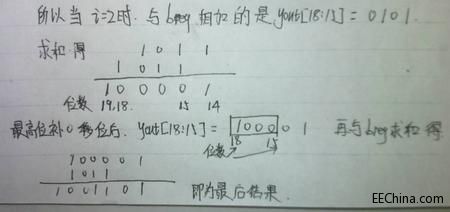 所以当 i=2时. 与breg相加的是yout[18:15] = 0101.
求和得
1 0 1 1 1
1 0 1 1
1 0 0 0 0 1
位数 19.18. 15 14
最高位补0移位后. yout[18:15] = 1000 0 1 再与breg求和得
位数 18 15
1 0 0 0 0 1
1 0 1 1
1 0 0 1 1 0 1 即为最后结果.
EEChina.com